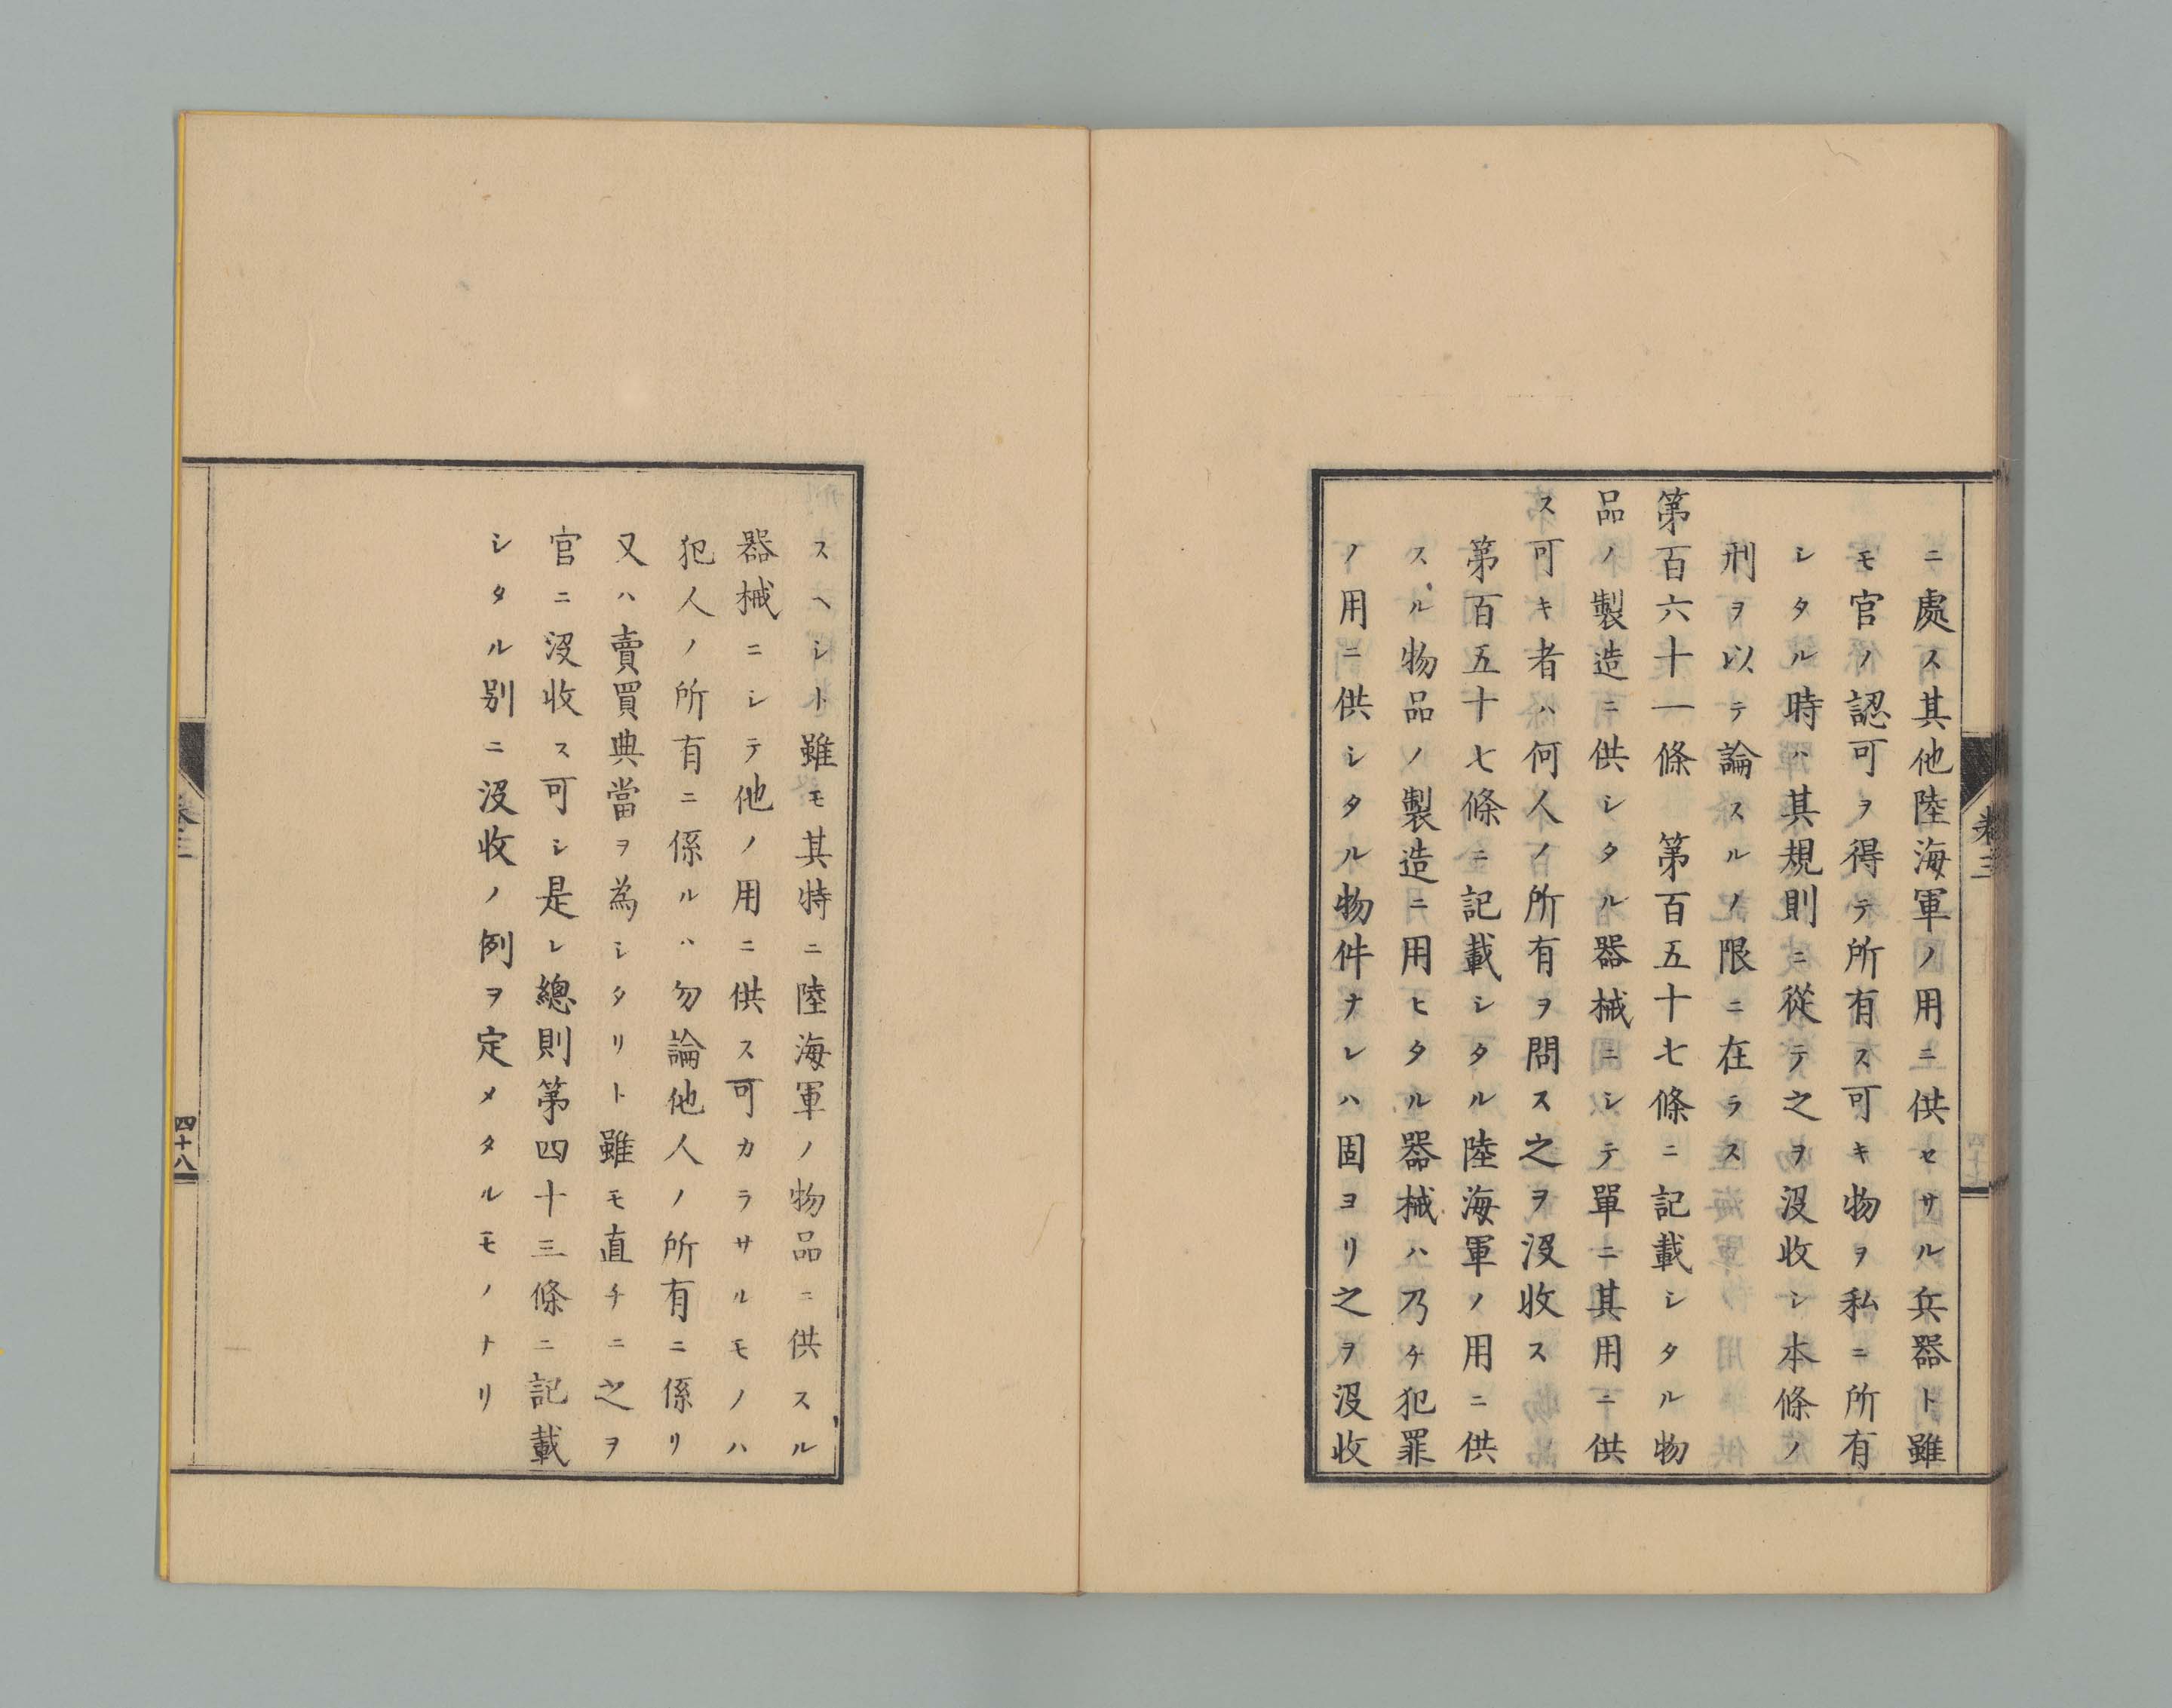 卷三
ニ處ス其他陸海軍ノ用ニ供セサル兵器ト雖
モ官ノ認可ヲ得テ所有ス可キ物ヲ私ニ所有
シタル時ハ其規則ニ從テ之ヲ沒收シ本條ノ
刑ヲ以テ論スルノ限ニ在ラス
第百六十一條　第百五十七條ニ記載シタル物
品ノ製造ニ供シタル器械ニシテ單ニ其用ニ供
ス可キ者ハ何人ノ所有ヲ問ス之ヲ沒收ス
第百五十七條ニ記載シタル陸海軍ノ用ニ供
スル物品ノ製造ニ用ヒタル器械ハ乃チ犯罪
ノ用ニ供シタル物件ナレハ固ヨリ之ヲ沒收
スヘシト雖モ其特ニ陸海軍ノ物品ニ供スル
器械ニシテ他ノ用ニ供ス可カラサルモノハ
犯人ノ所有ニ係ルハ勿論他人ノ所有ニ係リ
又ハ賣買典當ヲ為シタリト雖モ直チニ之ヲ
官ニ沒收ス可シ是レ總則第四十三條ニ記載
シタル別ニ沒收ノ例ヲ定メタルモノナリ
卷三
四十八